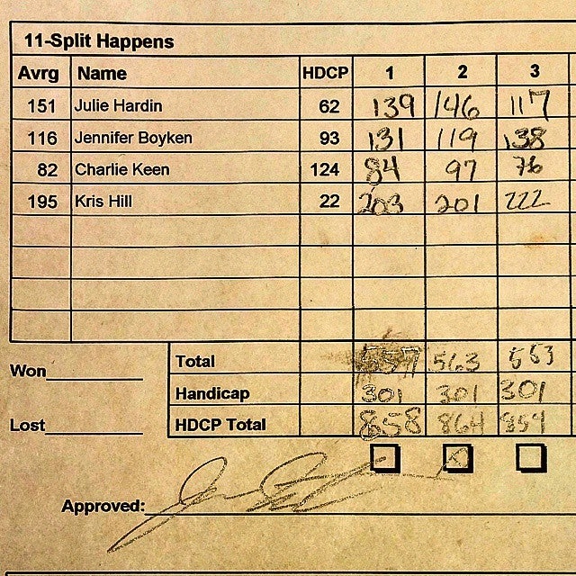 11-Split Happens
Avrg Name HDCP 1 2 3
151 Julie Hardin 62 139 146 117
116 Jennifer Boyken 93 131 119 138
82 Charlie Keen 124 84 97 76
195 Kris Hill 22 203 201 222
Won Total 557 563 553
Handicap 301 301 301
Lost HDCP Total 858 864 854
Approved: